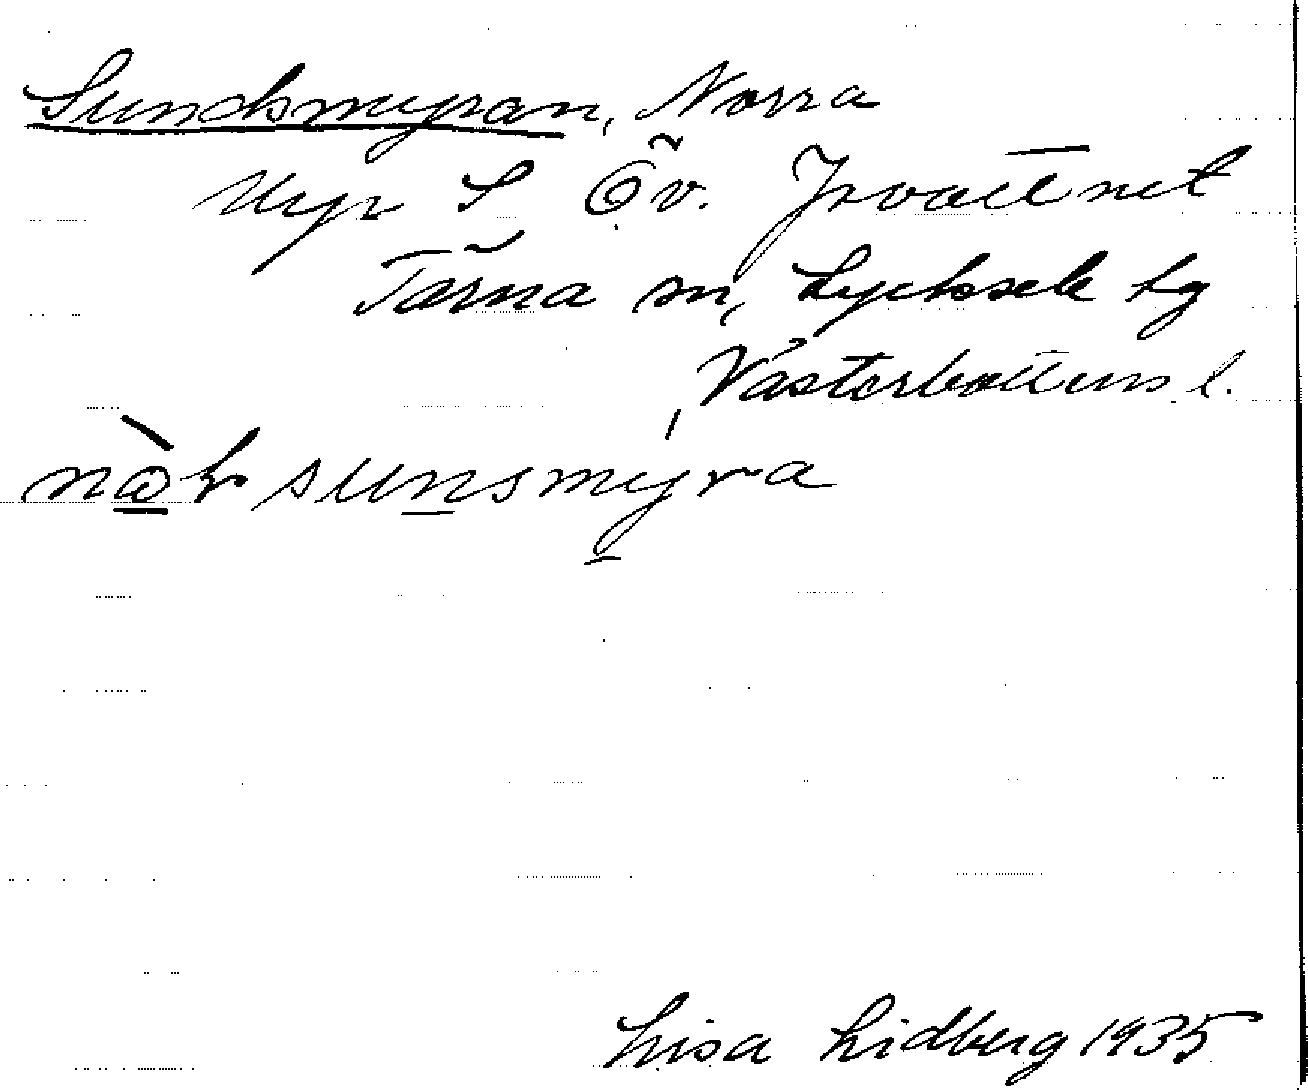 Sundsmyran, Norra
Myr S Öv. Jovattnet
Tärna sn, Lycksele lg
Västerbottens l.
sunsmyra
Lisa Lidberg 1935